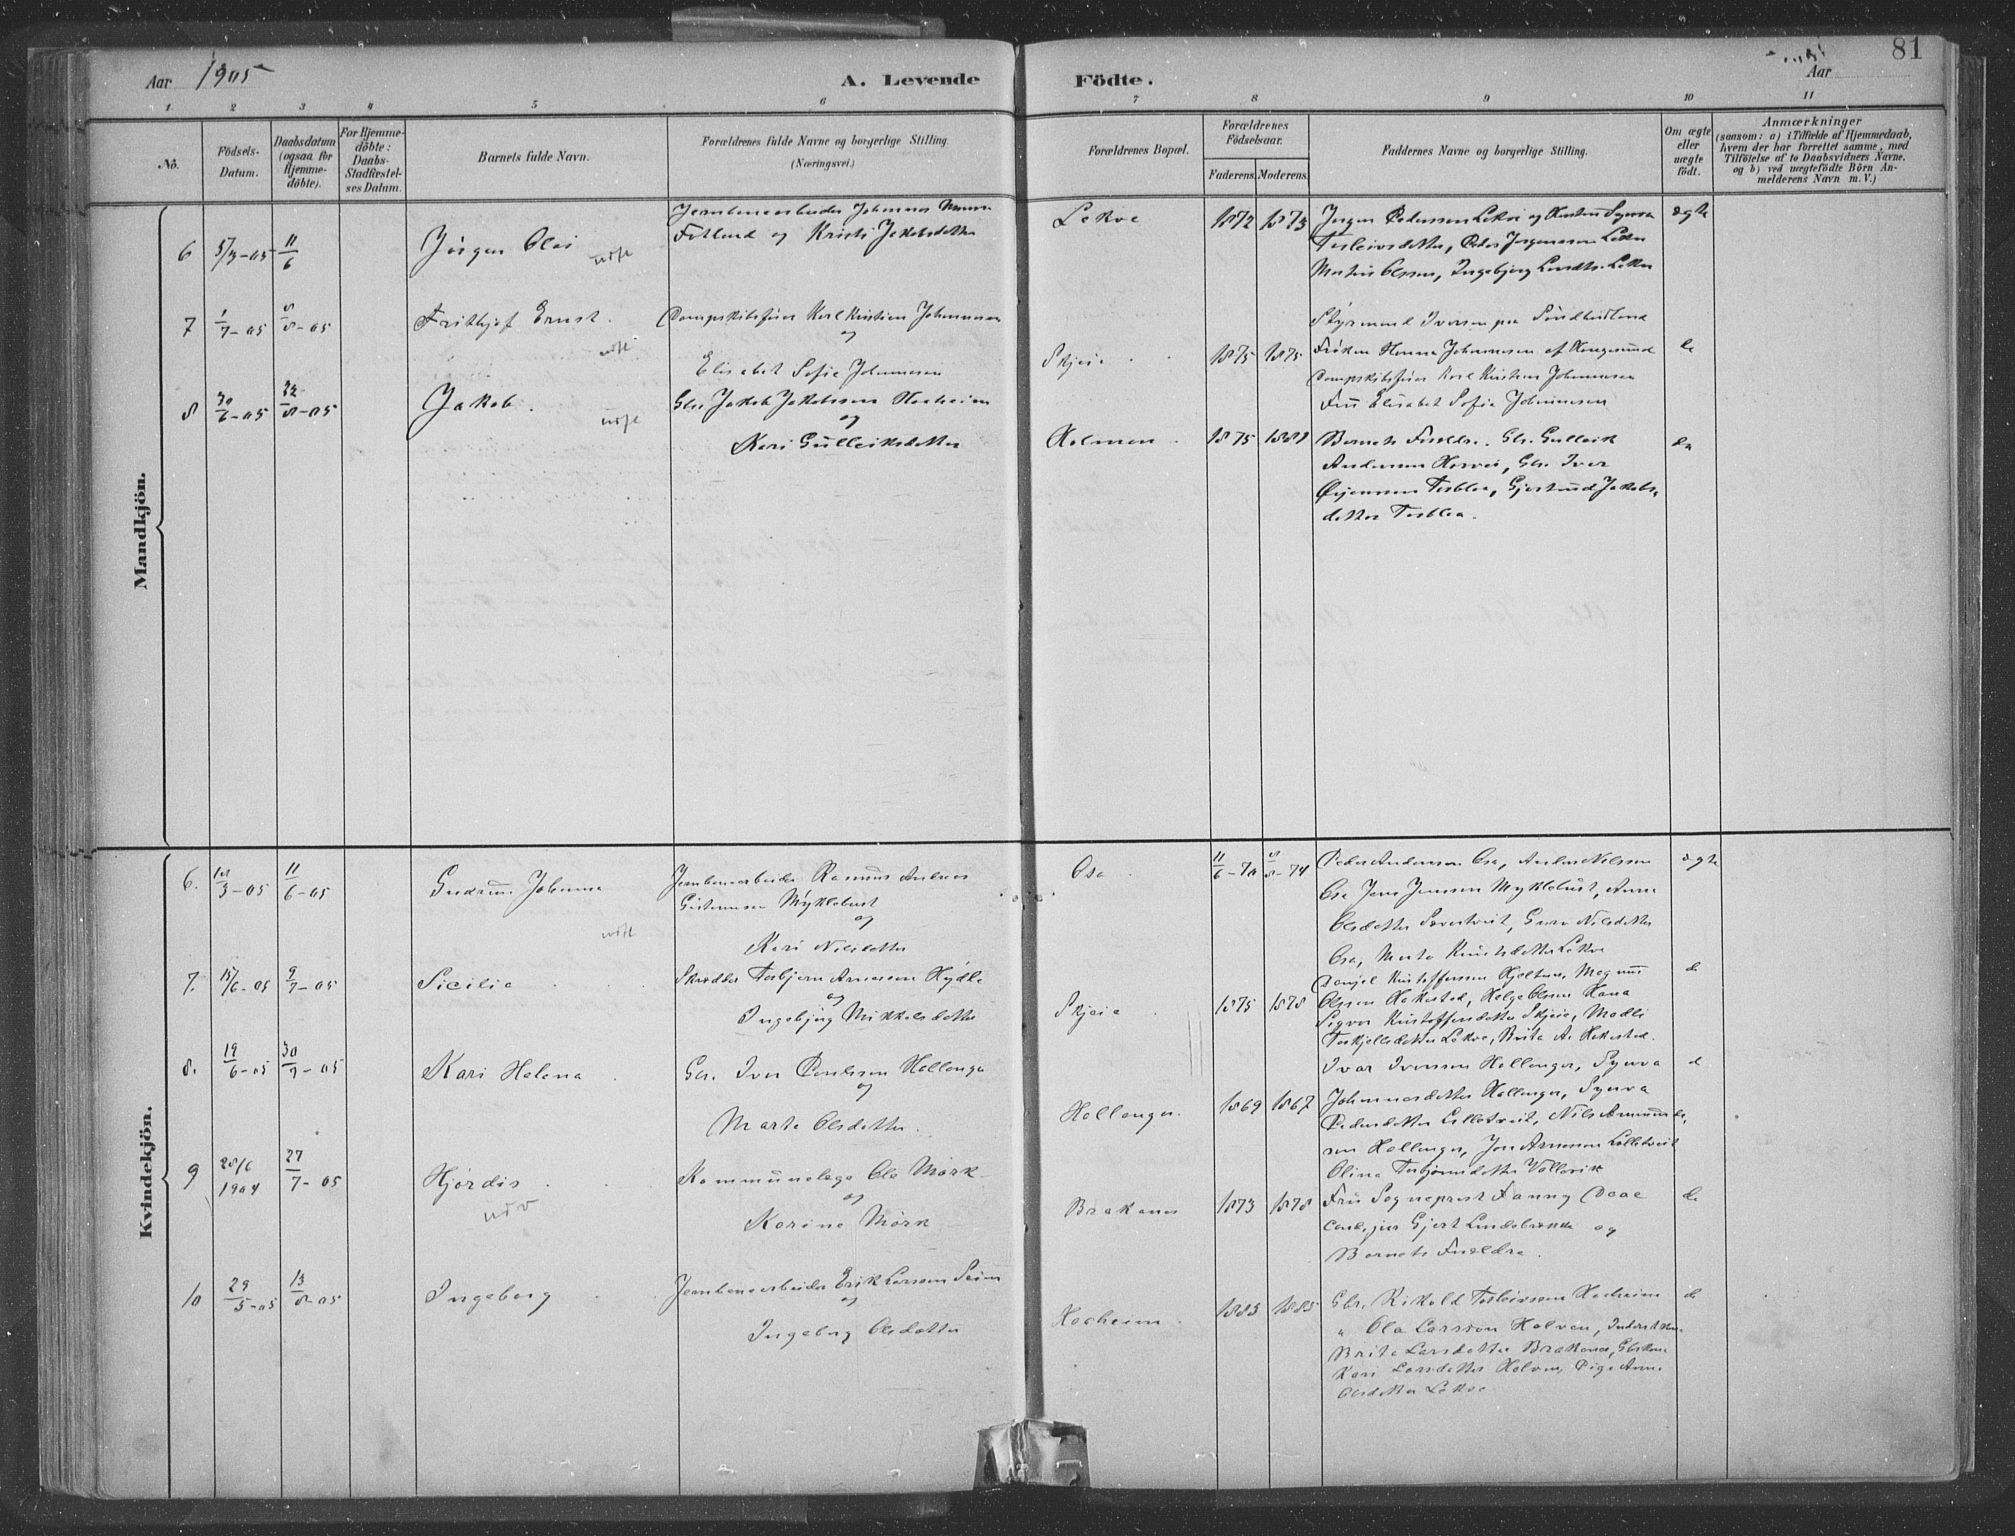 81
Aar 1905
A. Levende
Födte.
Aar
1 2 3 4 5 6 7 8 9 10 11
No.
Födsels-
Datum.
Daabsdatum
(ogsaa for
Hjemme-
döbte).
For Hjemme-
döbte:
Daabs-
Stadfæstel-
ses Datum.
Barnets fulde Navn.
Forældrenes fulde Navne og borgerlige Stilling.
(Næringsvei.)
Forældrenes Bopæl.
Forældrenes
Födselsaar.
Faderens.
Moderens.
Faddernes Navne og borgerlige Stilling.
Om ægte
eller
uægte
födt.
Anmærkninger
(saasom: a) i Tilfælde af Hjemmedaab,
hvem der har forrettet samme, med
Tilföielse af to Daabsvidners Navne,
og b) ved uægtefödte Börn An-
melderens Navn m. V.)
Mandkjön.
6 5/3-05 11/6 Jørgen Olai
Jernbenearbeider Johannes
Fetland og Kristi Jakobsdatter
Lekve 1872 1873
Jørgen Pedersen Lekve og Kirsten Synva
Torleivsdatter, Peder Jørgensen Lekve
Martin Olsson, Ingebjørg Lekve
ægte
7 1/7-05 8/8-05 Frithjof Ernst.
Dampskibsfører Karl Kristian Johannesen
og
Elisabet Sofie Johannesen
Skjeie 1875 1875
Styrmand Iversen paa Søndhordland
Frøken Hanna Johannesen af Haugesund
Dampskibsfører Karl Kristian Johannesen
Fru Elisabet Sofie Johannesen
8 30/6-05 22/8-05 Jakob.
Gbr. Jakob Jakobsen Hæheim
og
Kari Gulleiksdatter
Holmen 1875 1881
Barnets Forældre. Gbr. Gulleik
Andersen, Gbr. Iver
Torblaa, Gjertrud Jakobs-
datter Torblaa.
Kvindekjön.
6. 3-05 11/6-05 Gudrun Johanna
Jernbenearbeider Rasmus Andreas
Myklebust
og
Kari Nilsdatter
Osa 11/6-70 8/8-74
Peder Andersen Osa, Anders Nilssen
Osa Jens Jenssen Myklebust, Anna
Olsdatter, Guro Nilsdatter
Osa, Marta Knutsdatter Lekve
ægte
7. 15/6-05 9/7-05 Sicilie
Skrædder Torbjørn Arnesen Hylle
og
Ingebjørg Mikkelsdatter
Skjeie 1875 1878
Danjel Kristoffersen Hjeltnes, Magnus
Olssen Hakestad, Helge Olsen Hana
Sigver Kristoffersdatter Skjeie, Madli
Torkjellsdatter Lekve, Brita A. Hakestad.
8. 19/6-05 30/7-05 Kari Helena
Gbr. Iver Poulssen Hallanger
og
Marta Olsdatter.
Hallanger. 1869 1867
Ivar Iverssen Hallanger, Synva
Johannesdatter Hallanger, Synva
Pedersdatter Lilletveit, Nils
sen Hallanger, Jon Arnesen Lilletveit
Olina Torbjørnsdatter Vallavik
9 28/6 1904 27/7-05 Hjørdis
Kommunelæge Ole Mørk
og
Karine Mørk
Brakanes 1873 1878
Fru Sogneprest Fanny Daae
cand. jur Gjert Lindebrække og
Barnets Forældre.
10 29/5-05 13/8-05 Ingeborg
Jernbenearbeider Erik Larsson Seim
og
Ingeborg Olsdatter
Hæheim 1883 1885
Gbr. Rikold Torleivsson Hæheim
" Ola Larsson Holven,
Brita Larsdatter Brakanes,
Kari Larsdatter Holven, Pige Anna
Olsdatter Lekve